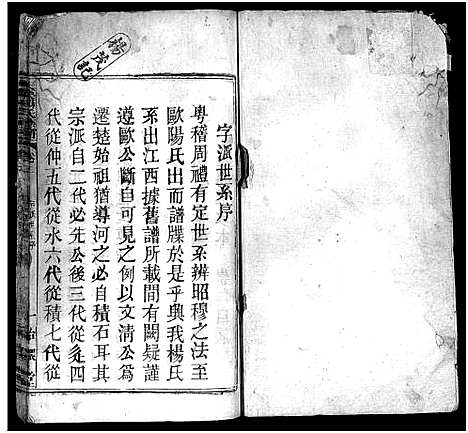 楊茂記
字派世系序
粵稽周禮有定世系辨昭穆之法至
歐陽氏出而譜牒於是乎興我楊氏
系出江西據舊譜所載間有闕疑謹
遵歐公斷自可見之例以文清公為
遷楚始祖猶導河之必自積石耳其
宗派自二代必先公後三代從彥四
代從仲五代從水六代從積七代從